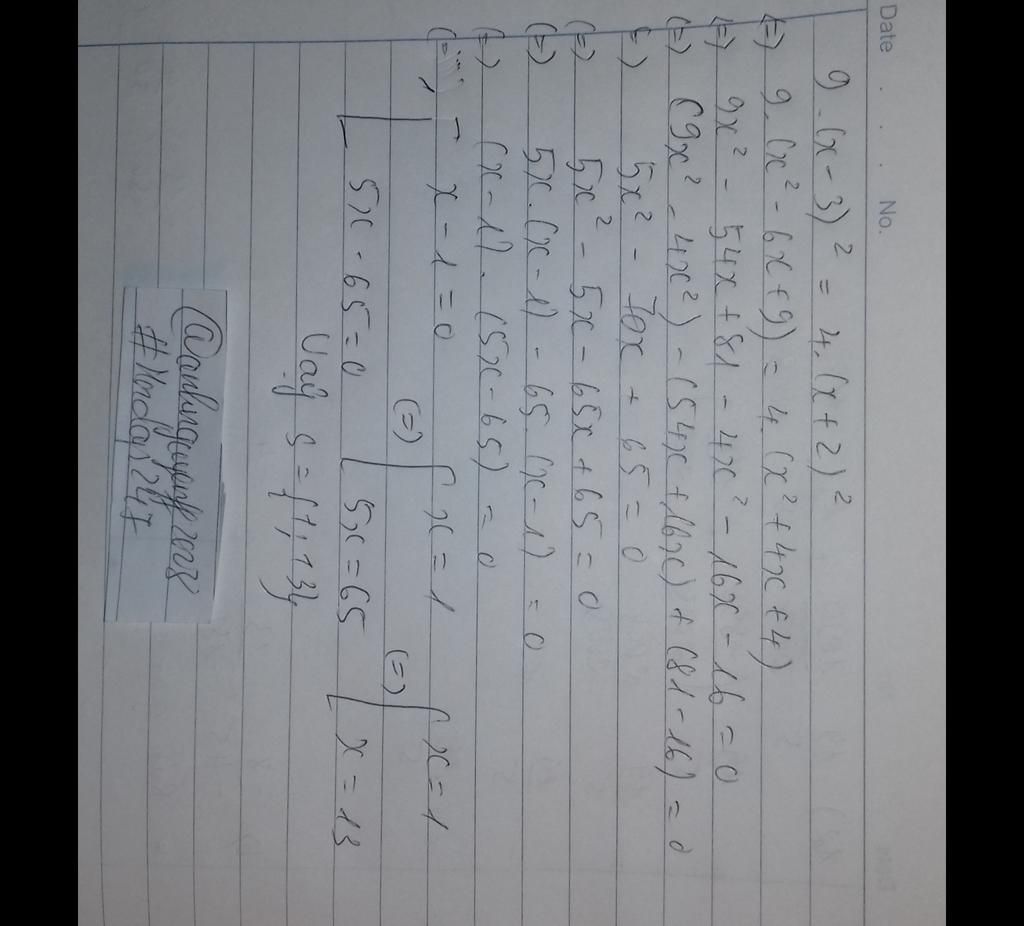 Date . . . No.
9.(x-3)² = 4.(x+2)²
(=) 9.(x²-6x+9) = 4.(x²+4x+4)
(=) 9x² - 54x + 81 - 4x² - 16x - 16 = 0
(=) (9x² - 4x²) - (54x + 16x) + (81-16) = 0
(=) 5x² - 70x + 65 = 0
(=) 5x² - 5x - 65x + 65 = 0
(=) 5x.(x-1) - 65.(x-1) = 0
(=) (x-1).(5x-65) = 0
(=) [ x-1=0 (=) [ x=1 (=) [ x=1
[ 5x-65=0 [ 5x=65 [ x=13
Vậy S={1;13}